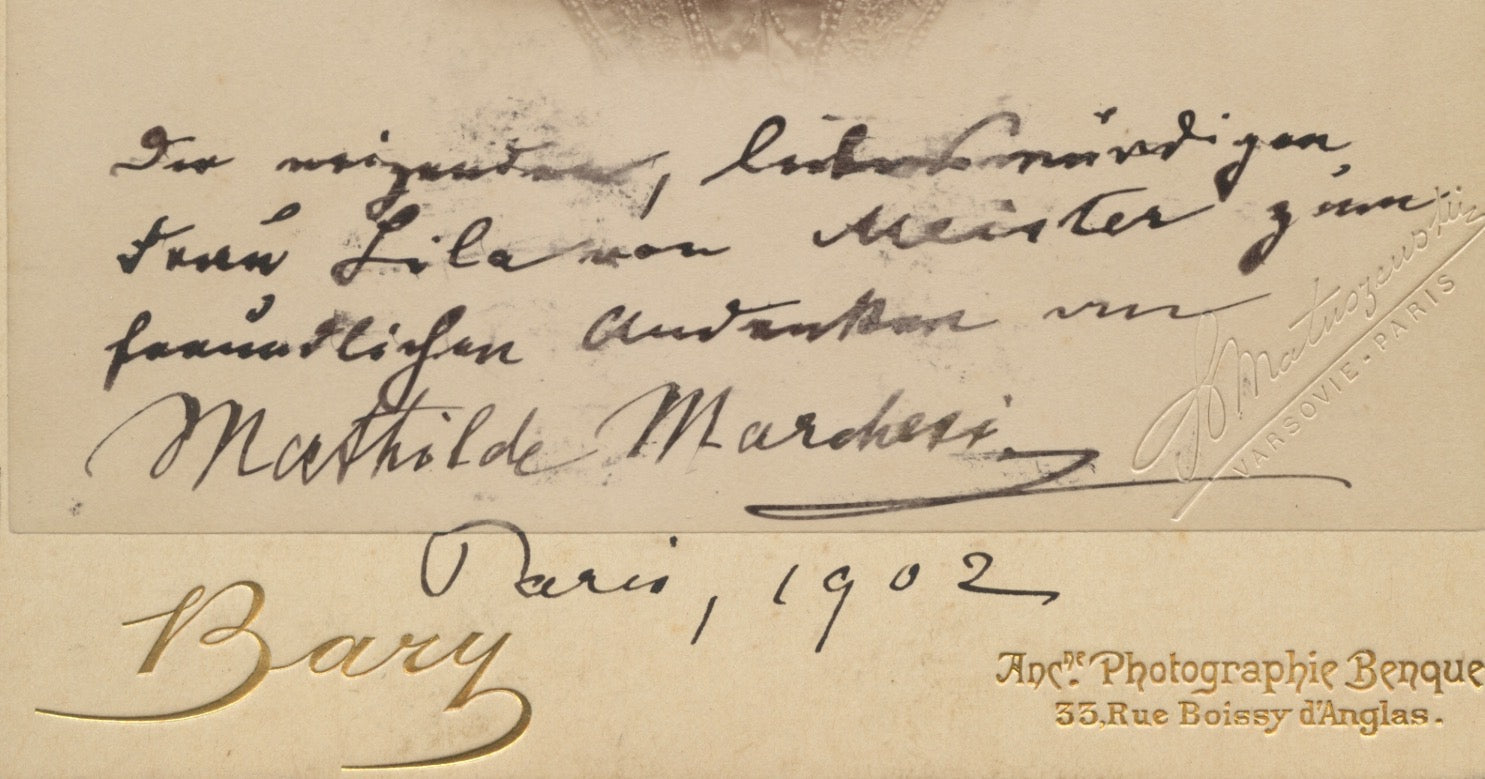 Der reizenden, liebenswürdigen
Frau Lila von Meister zum
freundlichen Andenken an
Mathilde Marchesi
Paris, 1902
Matuszewski
VARSOVIE - PARIS
Bary
Ancne. Photographie Benque
33, Rue Boissy d'Anglas.